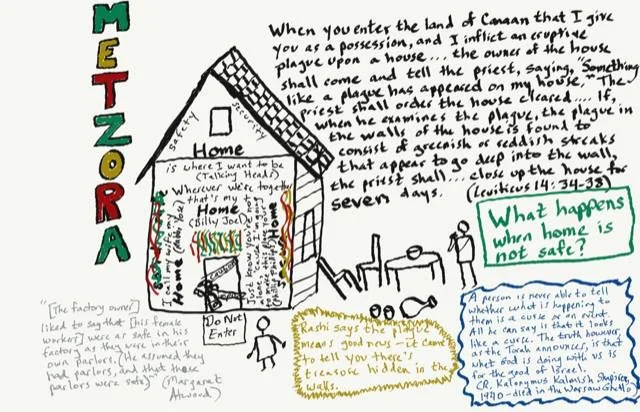 METZORA
When you enter the land of Canaan that I give
you as a possession, and I inflict an eruptive
plague upon a house.... the owner of the house
shall come and tell the priest, saying, "Something
like a plague has appeared on my house." The
priest shall order the house cleared.... If,
when he examines the plague, the plague in
the walls of the house is found to
consist of greenish or reddish streaks
that appear to go deep into the wall,
the priest shall... close up the house for
seven days. (Leviticus 14:34-38)
safety
security
Home
is where I want to be
(Talking Heads)
Wherever we're together
that's my
Home
(Billy Joel)
Home
Just know you're not
alone, 'cause I'm going
Home
(Phillip Phillips)
Do Not
Enter
What happens
when home is
not safe?
"[The factory owner]
liked to say that [his female
workers] were as safe in his
factory as they were in their
own parlors. (He assumed they
had parlors, and that these
parlors were safe)" (Margaret
Atwood)
Rashi says the plague
means good news - it came
to tell you there's
treasure hidden in the
walls.
A person is never able to tell
whether what is happening to
them is a curse or an event.
All he can say is that it looks
like a curse. The truth, however,
as the Torah announces, is that
what God is doing with us is
for the good of Israel.
(R. Kalonymus Kalmish Shapira,
1940 - died in the Warsaw Ghetto)